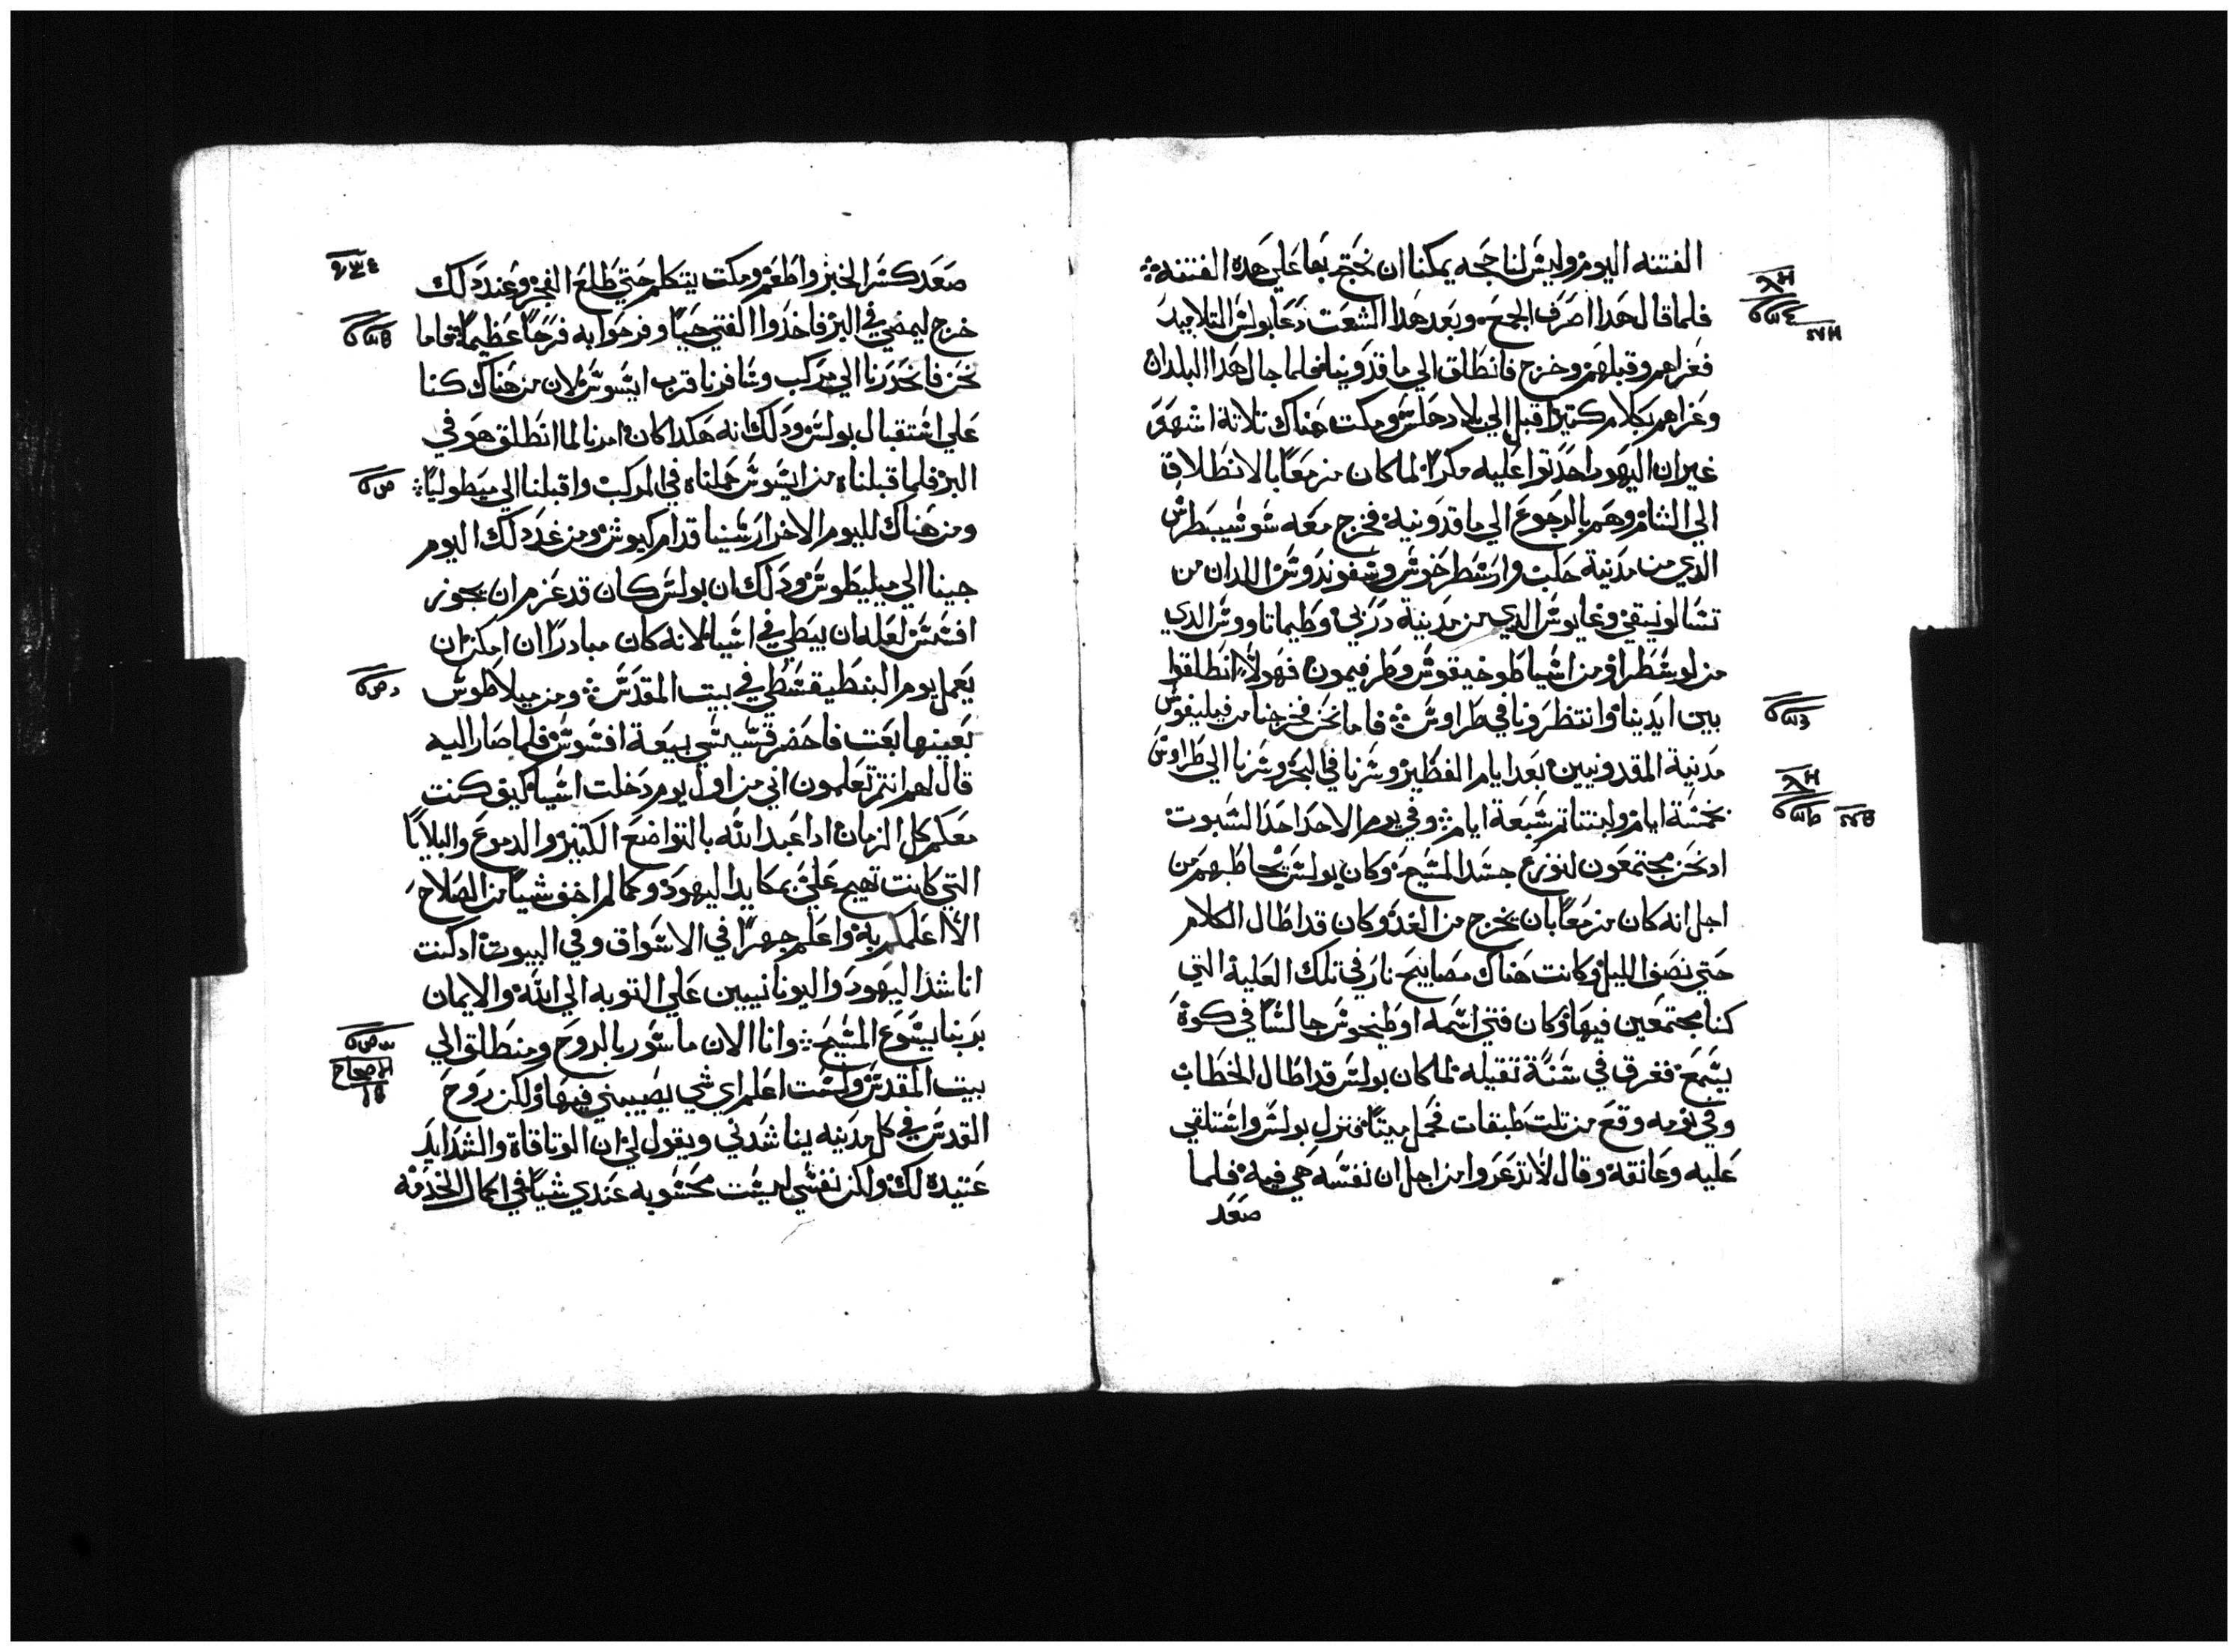 الفتنه اليوم وليس لنا حجه يمكنا ان نحتج بها علي هده الفتنه
فلما قال هدا اصرف الجمع وبعد هدا الشعت دعا بولس التلاميد
فعزاهم وقبلهم وخرج فانطلق الي ماقدونيا فلما جال هدا البلدان
وعزاهم بكلام كتير اقبل الي بلاد حلس ومكت هناك تلاتة اشهر
غير ان اليهود احدتوا عليه مكرا لما كان مزمعا بالانطلاق
الي الشام وهم بالرجوع الي ماقدونيه فخرج معه سوسيبطرس
الدي من مدنية حلب وارسطرخوس وسفوندوس اللدان من
تسالونيقي وغايوس الدي من مدينة دربي وطيماتاووس الدي
من لوسطرا ومن اسيا طوخيقوس وطرفيمون فهولاء انطلقوا
بين ايدينا وانتظرونا في طراوس فاما نحن فخرجنا من فيليفوس
مدنية المقدونيين بعد ايام الفطير وسرنا في البحر وسرنا الي طراوس
بخمسة ايام ولبتنا تم سبعة ايام وفي يوم الاحد احد السبوت
اد نحن مجتمعون لنوزع جسد المسيح وكان بولس يخاطبهم من
اجل انه كان مزمعا بان يخرج من الغد وكان قد اطال الكلام
حتي نصف الليل وكانت هناك مصابيح نار في تلك العلية التي
كنا مجتمعين فيها وكان فتي اسمه اوطيخوس جالسا في كوة
يسمع فغرق في سنة تقيله لما كان بولس قد اطال الخطاب
وفي نومه وقع من تلت طبقات فحمل ميتا فنزل بولس واستلقي
عليه وعانقه وقال لا تدعروا من اجل ان نفسه هي فيه فلما
صعد
صعد كسر الخبز واطعم ومكت يتكلم حتي طلع الفجر وعند دلك
خرج ليمضي في البر فاخدوا الفتي حيا وفرحوا به فرحا عظيما فاما
نحن فانحدرنا الي مركب وسافرنا قرب ايسوس لان من هناك كنا
علي استقبال بولس ودلك انه هكدا كان امرنا لما انطلق هو في
البر فلما قبلناه من ايسوس حملناه في المركب واقبلنا الي ميطوليا
ومن هناك لليوم الاخر ارسينا قدام كيوس ومن غد دلك اليوم
جينا الي ميليطوس ودلك ان بولس كان قد عزم ان يجوز
افسس لعله ان يبطي في اسيا لانه كان مبادرا ان امكن ان
يعمل يوم البنطيقسطي في بيت المقدس ومن ميلاطوس
بعينها بعت فاحضر قسيسي بيعة افسوس فلما صار اليه
قال لهم انتم تعلمون اني من اول يوم دخلت اسيا كيف كنت
معكم كل الزمان ادا عبد الله بالتواضع الكتير والدموع والبلايا
التي كانت تهيج علي بمكايد اليهود وكما لم اخف شيا من الصلاح
الا اعلمكم به واعلم جهرا في الاسواق وفي البيوت ادكنت
اناشد اليهود واليونانيين علي التوبه الي الله والايمان
بربنا يسوع المسيح وانا الان ماسور بالروح ومنطلق الي
الاصحاح
بيت المقدس ولست اعلم اي شي يصيبني فيها ولكن روح
القدس في كل مدينه يناشدني ويقول لي ان الوتاقاة والشدايد
عتيده لك ولكن نفسي ليست محسوبه عندي شيا في اكمال الخدمه